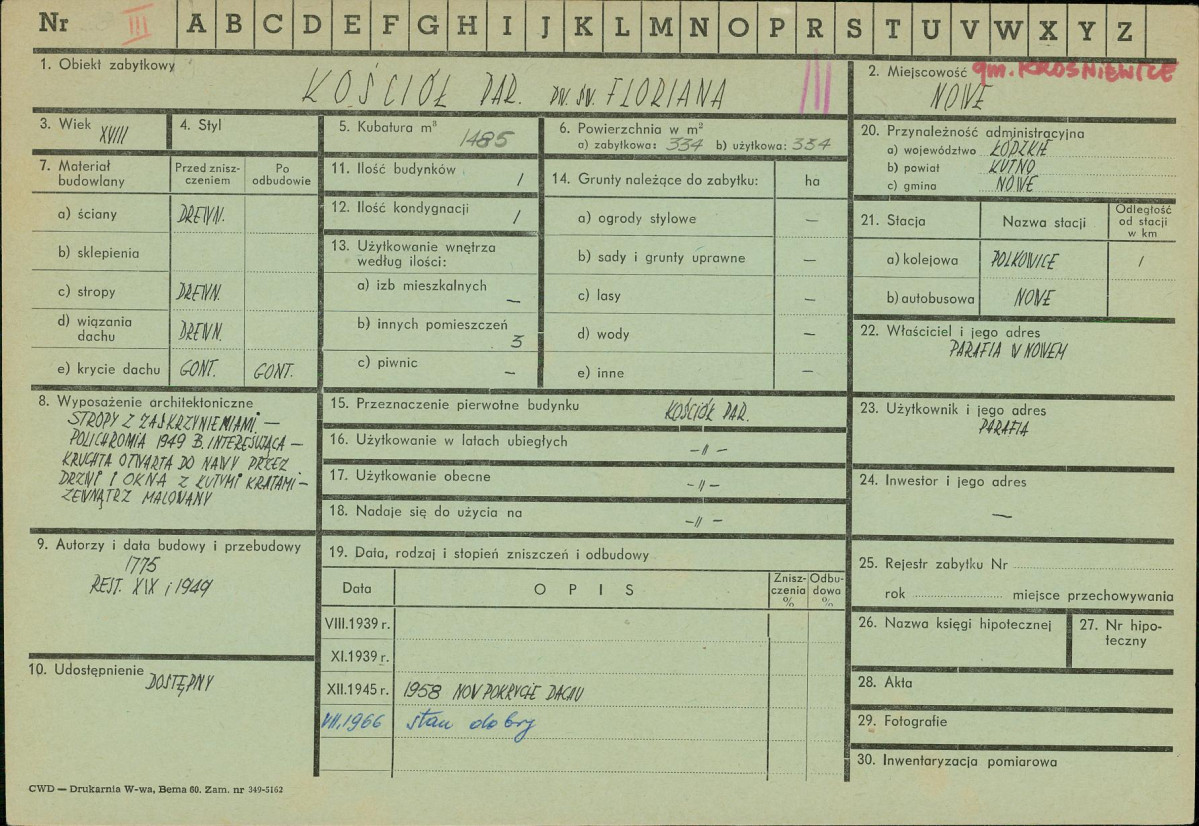 Nr III A B C D E F G H I J K L M N O P R S T U V W X Y Z
1. Obiekt zabytkowy
KOŚCIÓŁ PAR. PW. ŚW. FLORIANA III
2. Miejscowość gm. KROŚNIEWICE
NOWE
3. Wiek XVIII
4. Styl
5. Kubatura m³
1485
6. Powierzchnia w m²
a) zabytkowa: 334 b) użytkowa: 334
20. Przynależność administracyjna
a) województwo ŁÓDZKIE
b) powiat KUTNO
c) gmina NOWE
7. Materiał
budowlany
Przed znisz-
czeniem
Po
odbudowie
a) ściany DREWN.
b) sklepienia
c) stropy DREWN.
d) wiązania
dachu DREWN.
e) krycie dachu GONT. GONT.
11. Ilość budynków 1
12. Ilość kondygnacji 1
13. Użytkowanie wnętrza
według ilości:
a) izb mieszkalnych
—
b) innych pomieszczeń
3
c) piwnic —
14. Grunty należące do zabytku: ha
a) ogrody stylowe —
b) sady i grunty uprawne —
c) lasy —
d) wody —
e) inne —
21. Stacja Nazwa stacji Odległość
od stacji
w km
a) kolejowa POLKOWICE 1
b) autobusowa NOWE
22. Właściciel i jego adres
PARAFIA W NOWEM
8. Wyposażenie architektoniczne
STROPY Z ZASKRZYNIENIAMI. —
POLICHROMIA 1949 B. INTERESUJĄCA —
KRUCHTA OTWARTA DO NAWY PRZEZ
DRZWI I OKNA Z KUTYMI KRATAMI —
ZEWNĄTRZ MALOWANY
15. Przeznaczenie pierwotne budynku KOŚCIÓŁ PAR.
16. Użytkowanie w latach ubiegłych
—〃—
17. Użytkowanie obecne
—〃—
18. Nadaje się do użycia na
—〃—
23. Użytkownik i jego adres
PARAFIA
24. Inwestor i jego adres
—
9. Autorzy i data budowy i przebudowy
1775
REST. XIX i 1949
19. Data, rodzaj i stopień zniszczeń i odbudowy
Data OPIS Znisz-
czenia
%
Odbu-
dowa
%
VIII.1939 r.
XI.1939 r.
XII.1945 r. 1958 NOW POKRYCIE DACHU
VII.1966 stan dobry
25. Rejestr zabytku Nr
rok miejsce przechowywania
26. Nazwa księgi hipotecznej
27. Nr hipo-
teczny
10. Udostępnienie DOSTĘPNY
28. Akta
29. Fotografie
30. Inwentaryzacja pomiarowa
CWD — Drukarnia W-wa, Bema 60. Zam. nr 349-5162